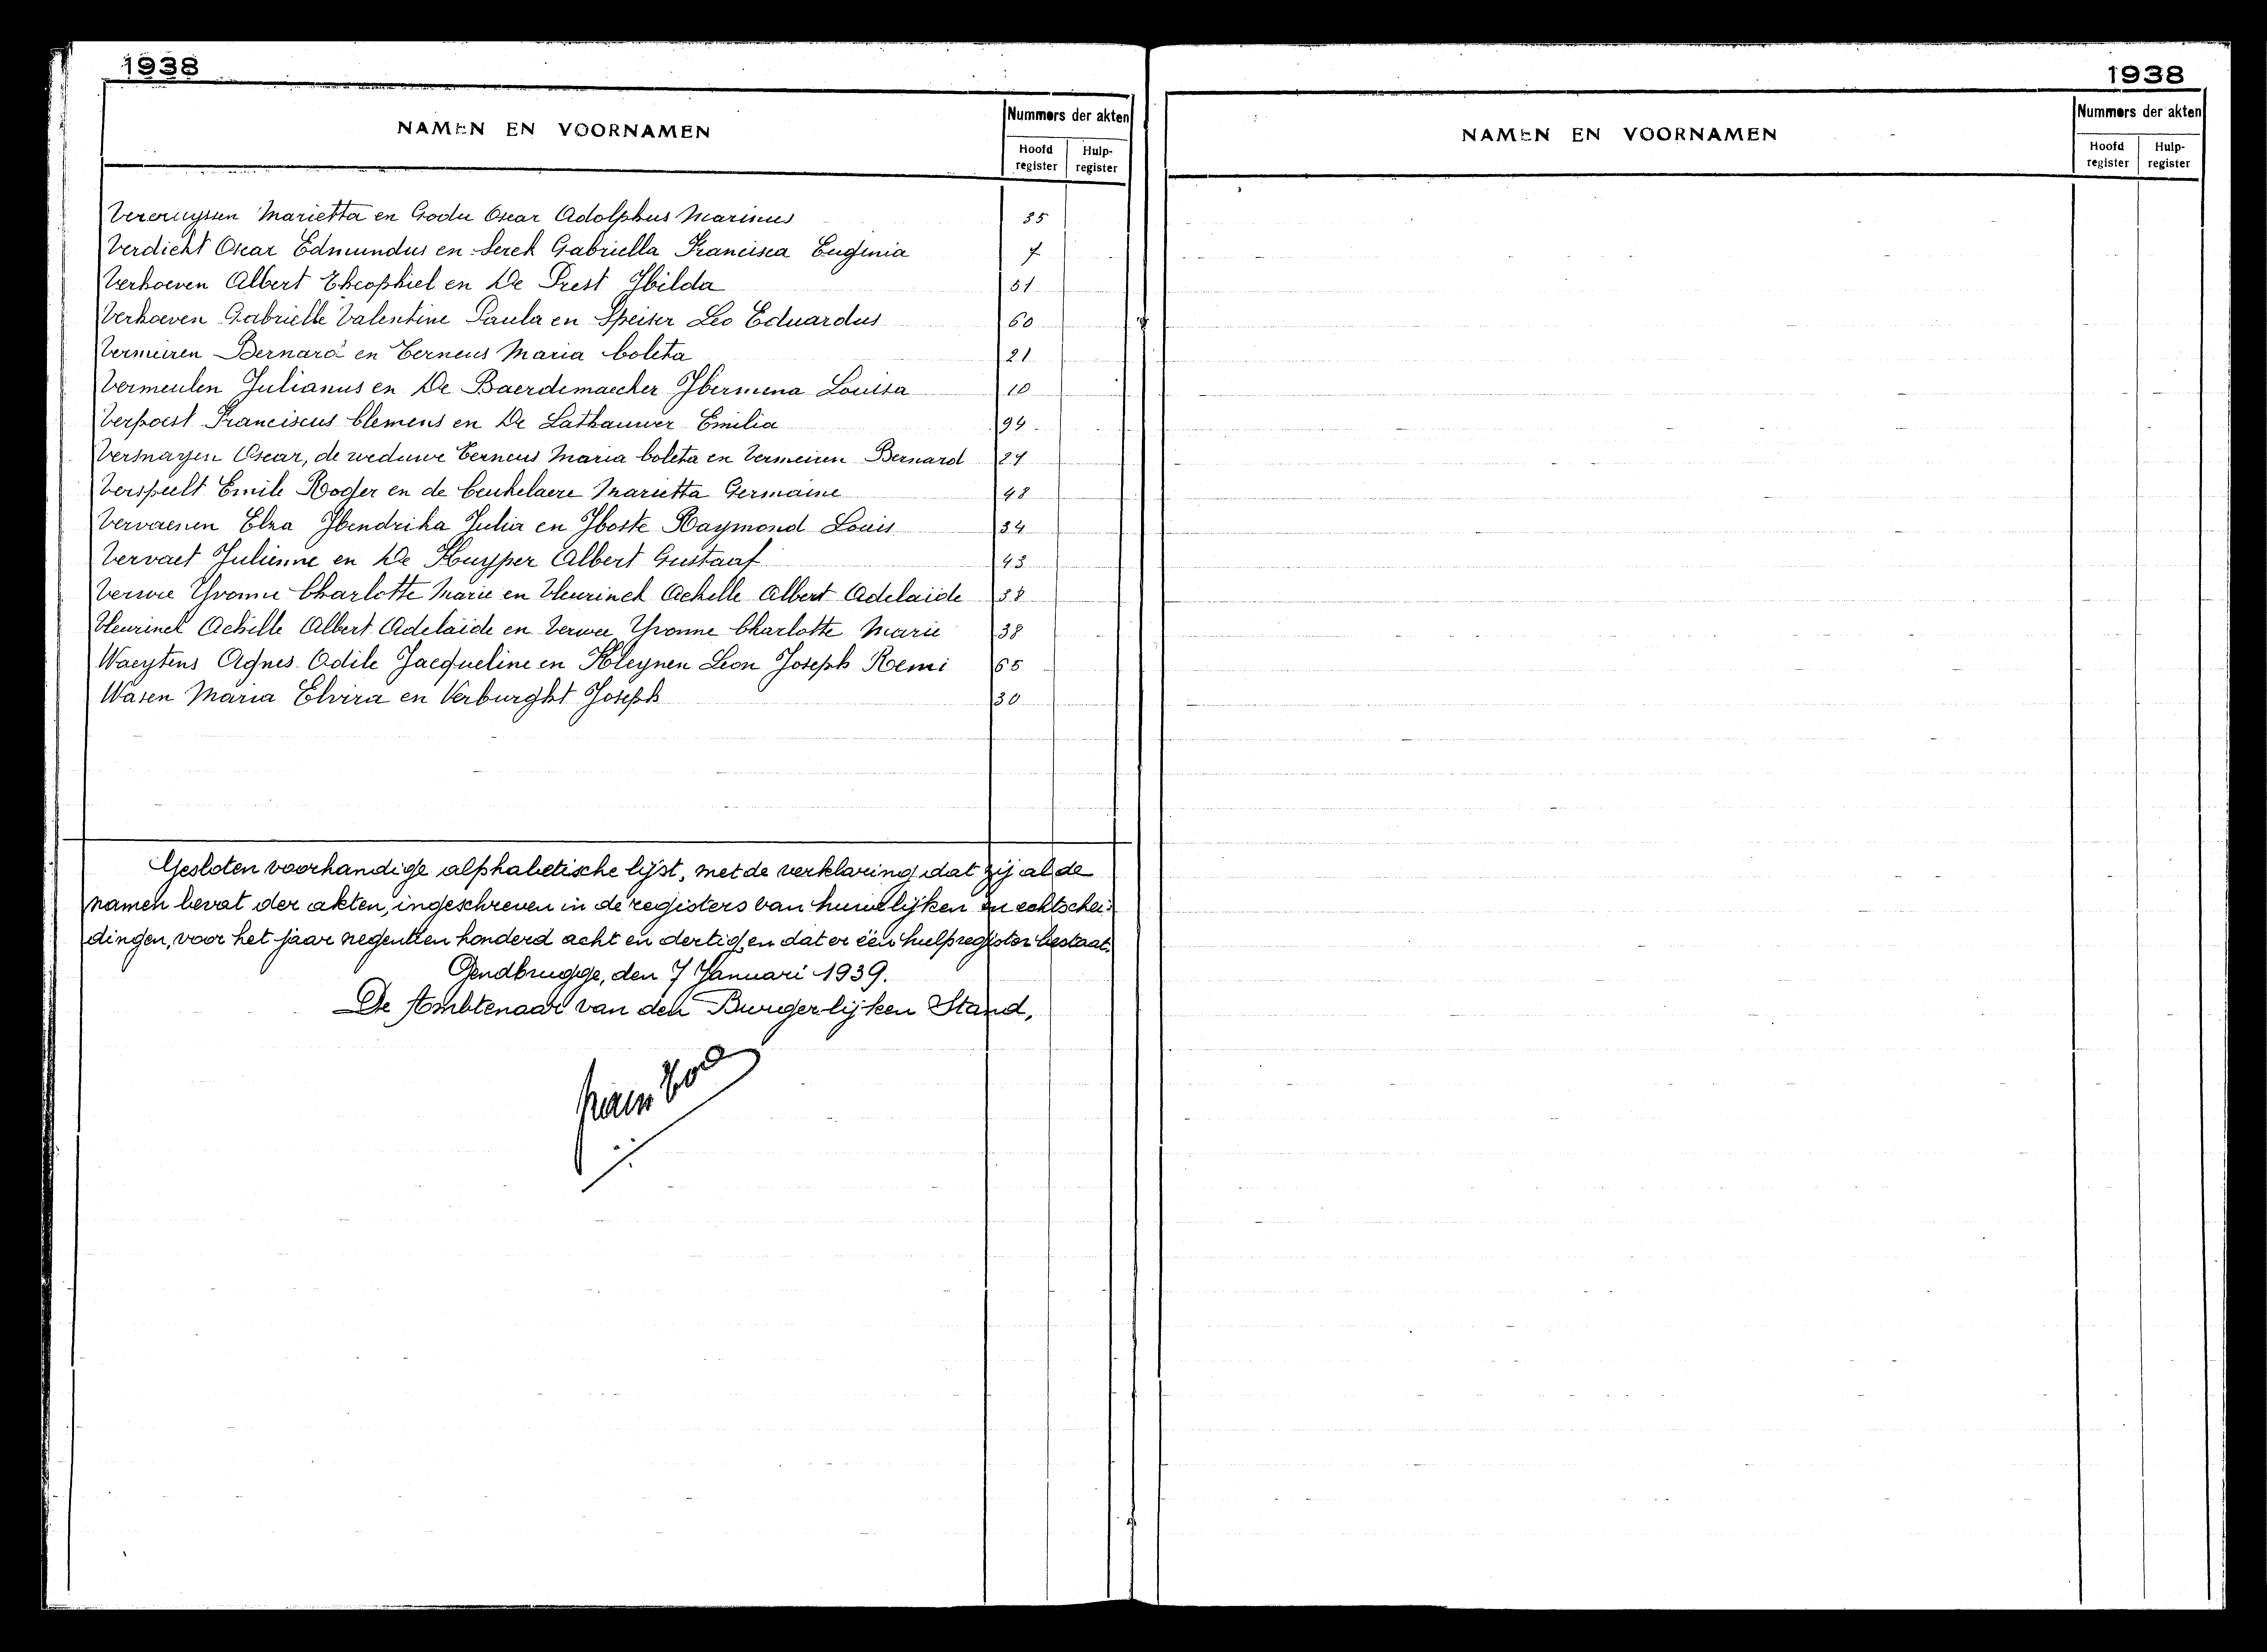 1938
NAMEN EN VOORNAMEN
Nummers der akten
Hoofd register
Hulp- register
Vercruyssen Marietta en Godu Oscar Adolphus Marinus 35
Verdicht Oscar Edmundus en Serck Gabriella Francisca Eugenia 7
Verhoeven Albert Theophiel en De Prest Hilda 51
Verhoeven Gabrielle Valentine Paula en Speiser Leo Eduardus 60
Vermeiren Bernard en Terneus Maria Coleta 21
Vermeulen Julianus en De Baerdemaecker Hermina Louisa 10
Verpoest Franciscus Clemens en De Lathauwer Emilia 94
Versnayen Oscar, de weduwe Terneus Maria Coleta en Vermeiren Bernard 21
Verspeelt Emile Roger en de Ceukelaere Marietta Germaine 48
Vervaenen Elza Hendrika Julia en Hoste Raymond Louis 34
Vervaet Julienne en De Kuyper Albert Gustaaf 43
Verwee Yvonne Charlotte Marie en Vleurinck Achille Albert Adelaïde 38
Vleurinck Achille Albert Adelaïde en Verwee Yvonne Charlotte Marie 38
Waeytens Agnes Odile Jacqueline en Kleynen Leon Joseph Remi 65
Wasen Maria Elvira en Verburght Joseph 30
Gesloten voorhandige alphabetische lijst, met de verklaring dat zij al de
namen bevat der akten, ingeschreven in de registers van huwelijken en echtschei-
dingen, voor het jaar negentien honderd acht en dertig, en dat er één hulpregister bestaat.
Gendbrugge, den 7 Januari 1939.
De Ambtenaar van den Burgerlijken Stand,
1938
NAMEN EN VOORNAMEN
Nummers der akten
Hoofd register
Hulp- register